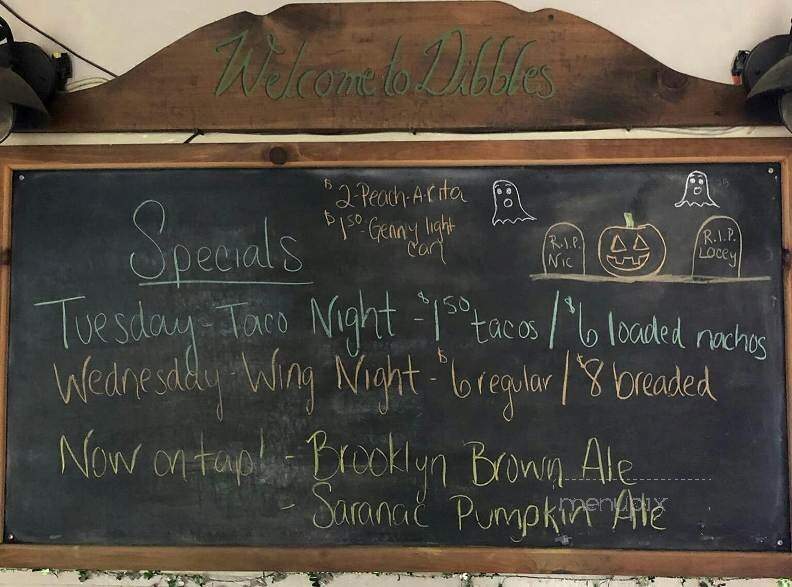 Welcome to Dibbles
$2-Peach-A-rita
$1.50-Genny light
can
Specials
R.I.P.
Nic
R.I.P.
Locey
Tuesday-Taco Night -$1.50 tacos / $6 loaded nachos
Wednesday-Wing Night - $6 regular / $8 breaded
Now on tap! - Brooklyn Brown Ale
- Saranac Pumpkin Ale
menupix